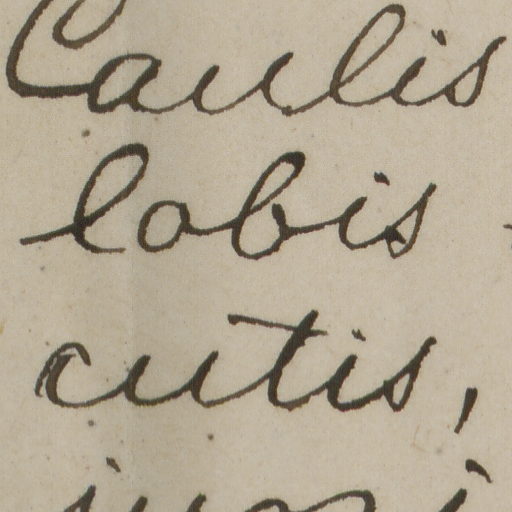 Caulis
lobis
cutis,